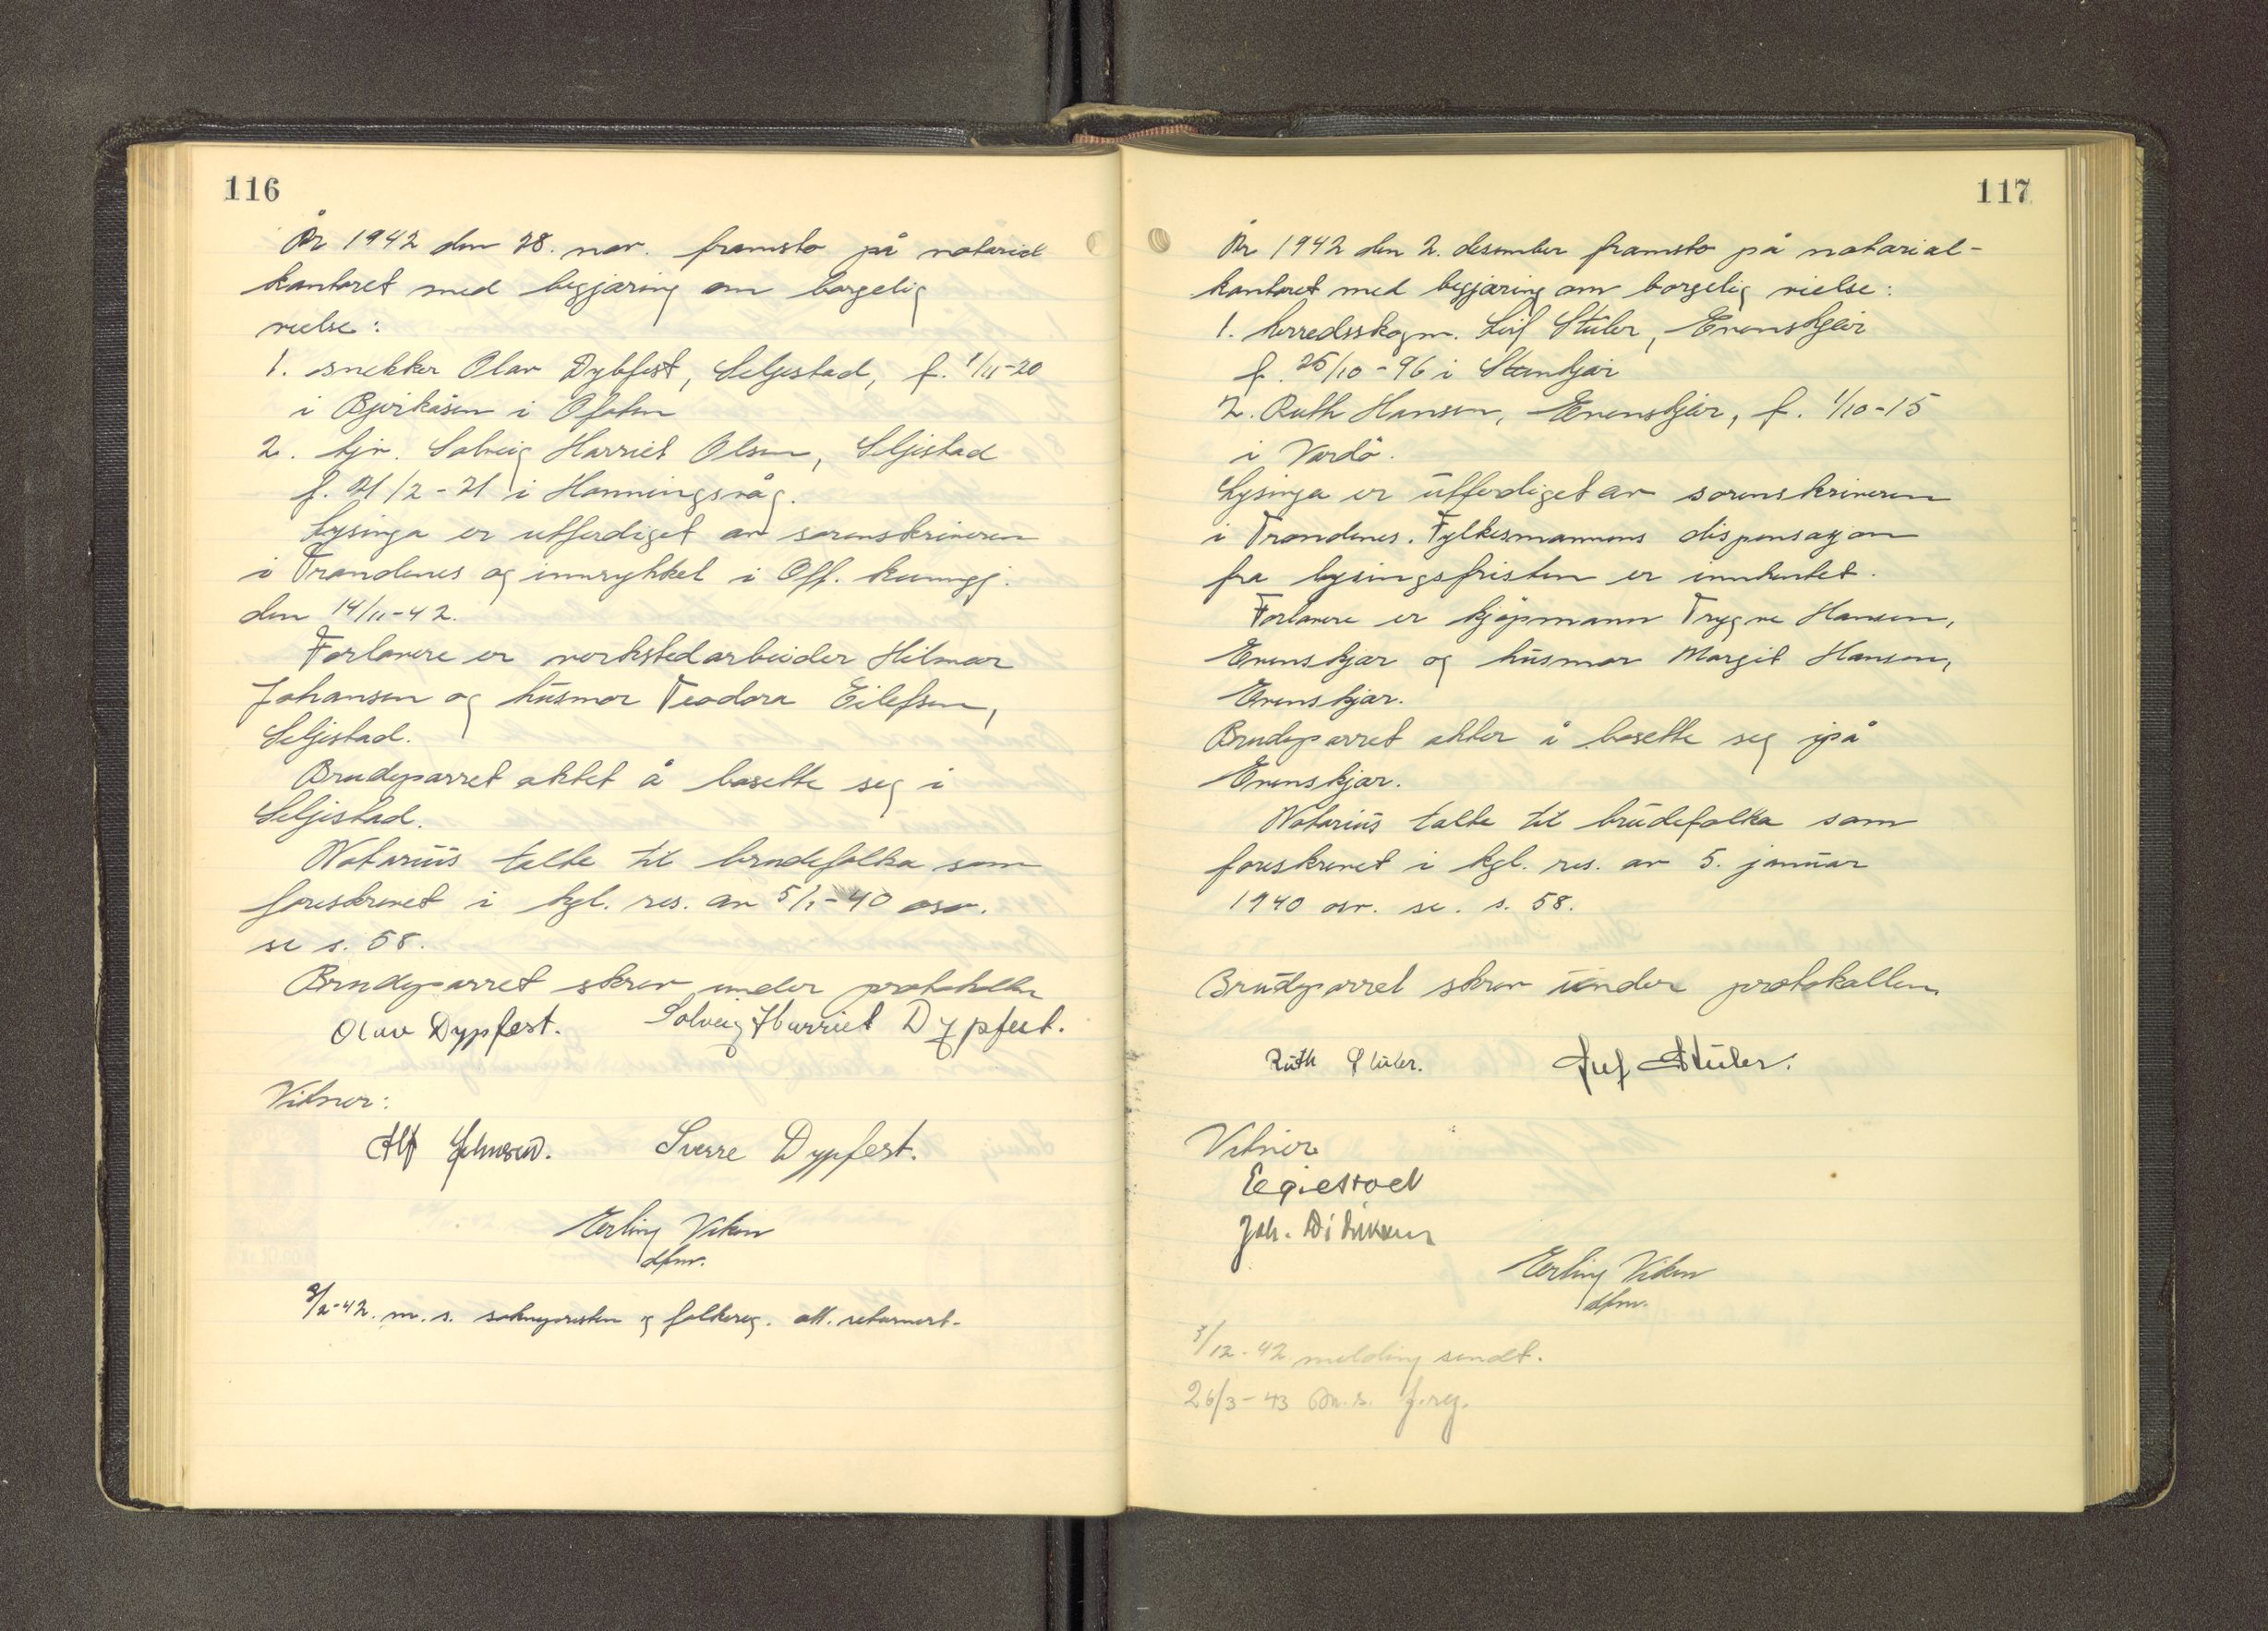 116
År 1942 den 28. nov. framsto på notarial
kontoret med begjæring om borgelig
vielse:
1. snekker Olav Dybfest, Seljestad, f. 1/11-20
i Bjerkåsen i Ofoten
2. hjv. Solveig Harriet Olsen, Seljestad
f. 21/2-21 i Honningsvåg.
Lysinga er utferdiget av sorenskriveren
i Trondenes og innrykket i Off. kunngj.
den 14/11-42.
Forlovere er verkstedarbeider Hilmar
Johansen og husmor Teodora Eilefsen,
Seljestad.
Brudeparret aktet å bosette seg i
Seljestad.
Notarius talte til brudefolka som
foreskrevet i kgl. res. av 5/1-40 osv.
se s. 58.
Brudeparret skrev under protokollen
Olav Dypfest. Solveig Harriet Dypfest.
Vitner:
Alf Johnsen. Sverre Dypfest.
Erling Viken
dfm.
3/12-42. m. s. soknepresten og folkereg. att. returnert.
117
År 1942 den 2. desember framsto på notarial-
kontoret med begjæring om borgelig vielse:
1. herredsskogm. Leif Stüler, Evenskjær
f. 25/10-96 i Steinkjær
2. Ruth Hansen, Evenskjær, f. 1/10-15
i Vardö.
Lysinga er utferdiget av sorenskriveren
i Trondenes. Fylkesmannens dispensasjon
fra lysingsfristen er innhentet.
Forlovere er kjøpmann Trygve Hansen,
Evenskjær og husmor Margit Hansen,
Evenskjær.
Brudeparret akter å bosette seg på
Evenskjær.
Notarius talte til brudefolka som
foreskrevet i kgl. res. av 5. januar
1940 osv. se. s. 58.
Brudeparret skrev under protokollen
Ruth Stüler. Leif Stüler.
Vitner
Joh. Didriksen
Erling Viken
dfm.
3/12-42 melding sendt.
26/3-43 m.s. f.reg.